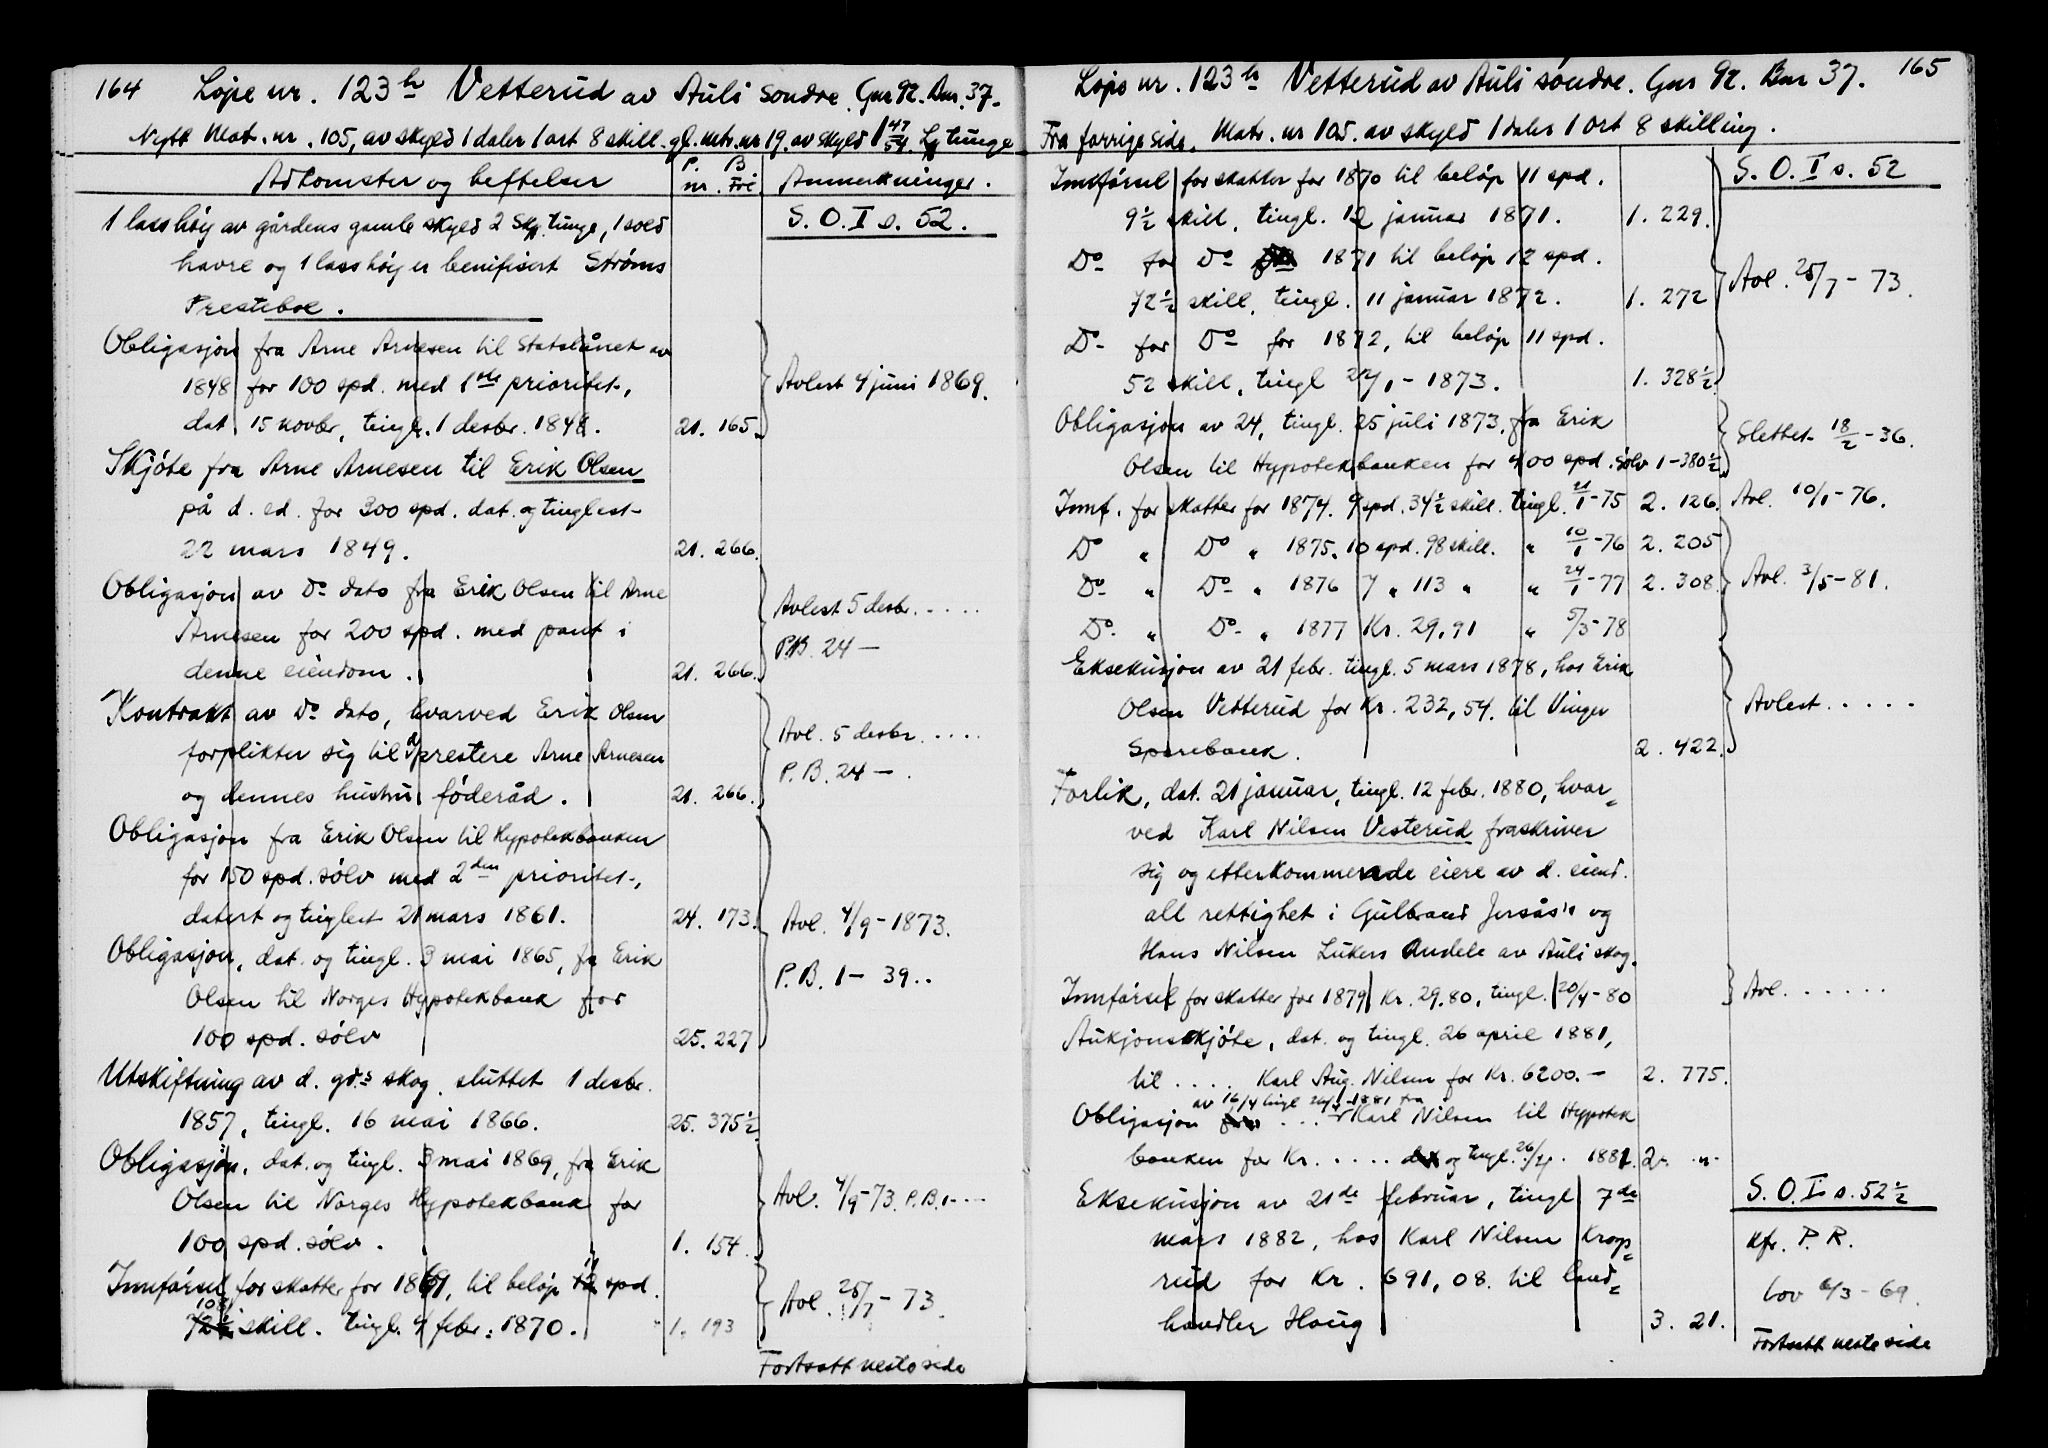 164 Løpe nr. 123h Vetterud av Auli søndre. Gnr 92. Bnr. 37.
Nytt Matr. nr. 105, av skyld 1 daler 1 ort 8 skill. gl. matr. nr 19. av skyld 1 47/54 Lp tunge
Adkomster og heftelser
P. B
nr. Fri
Anmerkninger.
1 lass høy av gårdens gamle skyld 2 Skp. tunge, 1 sold
havre og 1 lass høy er benifisert Strøms
Prestebol.
S. O. I s. 52.
Obligasjon fra Arne Arnesen til Statslånet av
1848 for 100 spd. med 1ste prioritet,
dat. 15 novbr, tingl. 1 desbr. 1848. 21. 165.
Avlest 4 juni 1869.
Skjøte fra Arne Arnesen til Erik Olsen
på d. ed. for 300 spd. dat. og tinglest
22 mars 1849. 21. 266.
Obligasjon av Do dato fra Erik Olsen til Arne
Arnesen for 200 spd. med pant i
denne eiendom. 21. 266.
Avlest 5 desbr. . . . .
P.B. 24 —
Kontrakt av Do dato, hvarved Erik Olsen
forplikter sig til å prestere Arne Arnesen
og dennes hustru føderåd. 21. 266.
Avl. 5 desbr. . . . .
P. B. 24 — .
Obligasjon fra Erik Olsen til Hypotekbanken
for 150 spd. sølv med 2den prioritet,
datert og tinglest 21 mars 1861. 24. 173.
Obligasjon, dat. og tingl. 3 mai 1865, fra Erik
Olsen til Norges Hypotekbank for
100 spd. sølv 25. 227
Avl. 4/9 - 1873.
P. B. 1 — 39..
Utskiftning av d. gds skog sluttet 1 desbr.
1857, tingl. 16 mai 1866. 25. 375 1/2
Obligasjon, dat. og tingl. 3 mai 1869, fra Erik
Olsen til Norges Hypotekbank for
100 spd. sølv. 1. 154.
Avl. 4/9 - 73. P.B. 1 - . .
Innførsel for skatter for 1869, til beløp 11 spd.
108 skill. tingl. 9 febr. 1870. 1. 193
Avl. 25/7 - 73.
Fortsatt neste side
Løpe nr. 123h Vetterud av Auli søndre. Gnr 92. Bnr 37. 165
Fra forrige side. Matr. nr 105. av skyld 1 daler 1 ort 8 skilling.
S. O. I s. 52
Innførsel for skatter for 1870 til beløp 11 spd.
9 1/2 skill, tingl. 12 januar 1871. 1. 229.
Do for Do 1871 til beløp 12 spd.
72 1/2 skill, tingl. 11 januar 1872. 1. 272
Do - for Do for 1872, til beløp 11 spd.
52 skill, tingl 22/1 - 1873. 1. 328 1/2
Avl. 25/7 - 73.
Obligasjon av 24, tingl. 25 juli 1873, fra Erik
Olsen til Hypotekbanken for 400 spd. sølv 1 - 380 1/2
Slettet 18/2 - 36.
Innf. for skatter for 1874. 9 spd. 34 1/2 skill. tingl. 21/1 - 75 2. 126. Avl. 10/1 - 76.
Do „ Do „ 1875. 10 spd. 98 skill. „ 10/1 - 76 2. 205
Do „ Do „ 1876 7 „ 113 „ „ 24/1 - 77 2. 308. Avl. 3/5 - 81.
Do. „ Do - „ 1877 Kr. 29,91 „ 5/3 - 78
Eksekusjon av 21 febr. tingl. 5 mars 1878, hos Erik
Olsen Vetterud for Kr. 232,54. til Vinger
Sparebank. 2. 422.
Avlest . . . . .
Forlik, dat. 21 januar, tingl. 12 febr. 1880, hvar=
ved Karl Nilsen Vesterud fraskriver
sig og etterkommerende eiere av d. eiend.
all rettighet i Gulbrand Jersås's og
Hans Nilsen Lukers Andele av Auli skog.
Innførsel for skatter for 1879 Kr. 29.80, tingl. 20/4 - 80 Avl. . . . . . .
Auksjonsskjøte, dat. og tingl. 26 april 1881,
til . . . . Karl Aug. Nilsen for Kr. 6200. — 2. 775.
av 16/4 tingl 26/4 1881 fra
Obligasjon . . . Karl Nilsen til Hypotek
banken for Kr. . . . . . og tingl. 26/4. 1881. 2. „
Eksekusjon av 21de februar, tingl 7de
mars 1882, hos Karl Nilsen Krop=
rud for Kr. 691,08. til land=
handler Haug 3. 21.
S. O. I s. 52 1/2
Kfr. P. R.
lov 6/3 - 69.
Fortsatt neste side